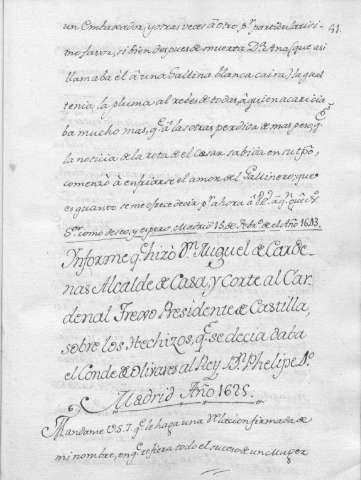 un Embaxador, y otras veces à otro, pr. particularisi-
51.
mo favor, si bien despues de muerta Da. Ana, (que asi
llamaba èl à una Gallina blanca caira) la qual
tenia, la pluma al rebes de todas, à quien acaricia
ba mucho mas, qe. à las otras perdido de mas pres;
la noticia de la rota del Casar sabida en su tpo.,
comenzò à enfriarse el amor del Gallinero; que
es quanto se me ofrece decir, pr. ahora à
como deseo, y espero. Madrid 15, de Febro. de el Año 1633.
Informe qe. hizò Dn. Miguel de Carde-
nas Alcalde de Casa, y Corte al Car-
denal Trexo Presidente de Castilla,
sobre los Hechizos, qe. se decia daba
el Conde de Olivares al Rey Dn. Phelipe 4o.
Madrid Año 1625.
Mandame V.S.I. qe. le haga una Relacion firmada de
mi nombre, en qe. refiera todo el suceso de una Muger